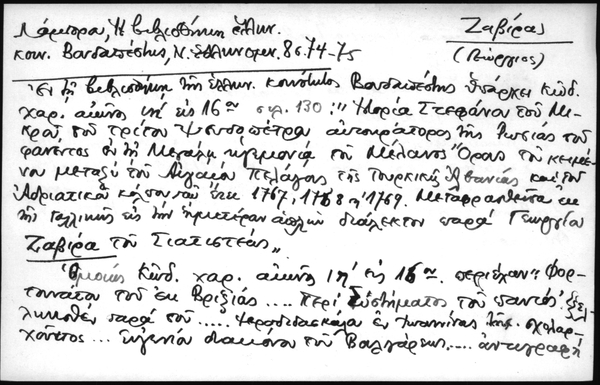 Λάμπρου, Ἡ βιβλιοθήκη ἑλλην.
Ζαβίρας
κοιν. Βουδαπέστης, Ν. Ἑλληνομν. 8 σ. 74-75
(Γεώργιος)
Ἐν τῇ βιβλιοθήκῃ τῆς ἑλλην. κοινότητος Βουδαπέστης ὑπάρχει κῶδ.
χαρ. αἰῶνος ιη' εἰς 16ον σελ. 130: "Ἱστορία Στεφάνου τοῦ Μι-
κροῦ, τοῦ τρίτου Ψευδοπέτρου αὐτοκράτορος τῆς Ρωσίας τοῦ
φανέντος ἐν τῇ Μεγάλῃ ἡγεμονίᾳ τοῦ Μέλανος Ὄρους τοῦ κειμέ-
νου μεταξὺ τοῦ Αἰγαίου Πελάγους τῆς Τουρκικῆς Ἀλβανίας καὶ τοῦ
Ἀδριατικοῦ κόλπου τοῦ ἔτει 1767, 1768 ἢ 1769. Μεταφρασθεῖσα ἐκ
τῆς Γαλλικῆς εἰς τὴν ἡμετέραν ἁπλῆν διάλεκτον παρὰ Γεωργίου
Ζαβίρα τοῦ Σιατιστέως"
Ὁμοίως κῶδ. χαρ. αἰῶνος ιη' εἰς 16ον. περιέχων: "Φορ-
τουνάτου τοῦ ἐκ Βριξίας .... Περὶ Συστήματος τοῦ παντός ἐξελ-
ληνισθὲν παρὰ τοῦ ..... Ἱεροδιδασκάλου ἐν Ἰωαννίνοις σχολαρ-
χοῦντος ... Εὐγενίου διακόνου τοῦ Βουλγάρεως .... ἀντιγραφὴ